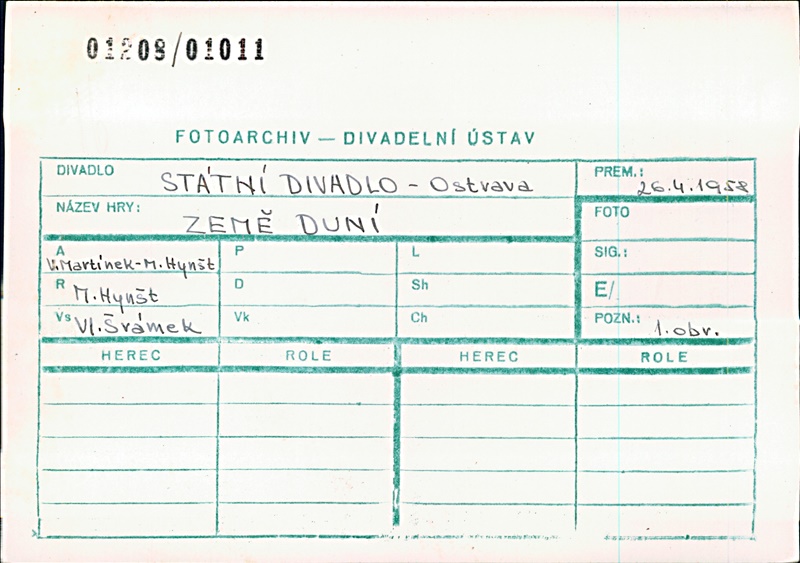 01208/01011
FOTOARCHIV — DIVADELNÍ ÚSTAV
DIVADLO STÁTNÍ DIVADLO - Ostrava
PREM.: 26.4.1958
NÁZEV HRY: ZEMĚ DUNÍ
FOTO
A V.Martínek-M.Hynšt
P
L
SIG.:
R M.Hynšt
D
Sh
E/
Vs Vl.Šrámek
Vk
Ch
POZN.: 1.obr.
HEREC ROLE HEREC ROLE